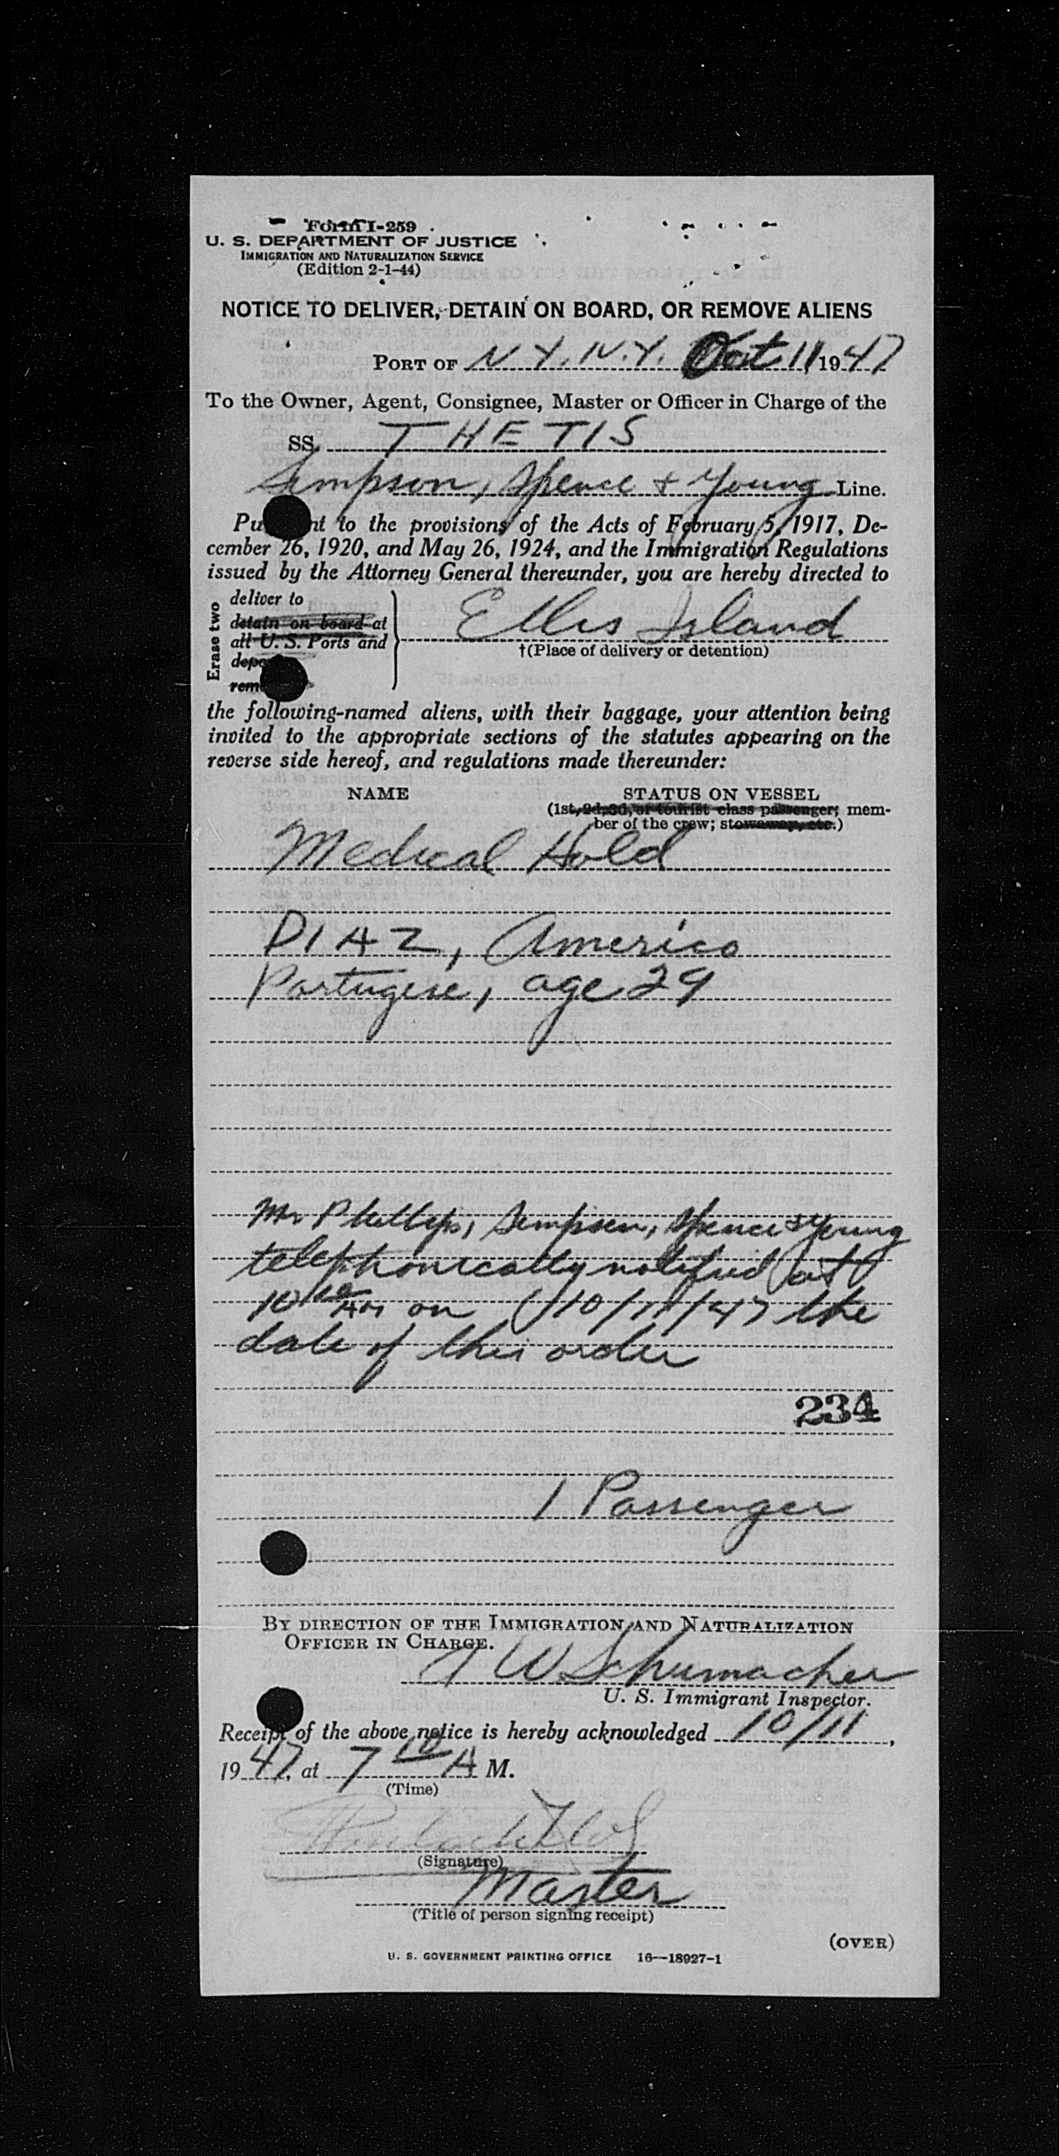 Form I-259
U. S. DEPARTMENT OF JUSTICE
IMMIGRATION AND NATURALIZATION SERVICE
(Edition 2-1-44)
NOTICE TO DELIVER, DETAIN ON BOARD, OR REMOVE ALIENS
PORT OF N Y. N.Y. Oct 11, 1947
To the Owner, Agent, Consignee, Master or Officer in Charge of the
SS. THETIS
Simpson, Spence & Young Line.
Pu nt to the provisions of the Acts of February 5, 1917, De-
cember 26, 1920, and May 26, 1924, and the Immigration Regulations
issued by the Attorney General thereunder, you are hereby directed to
Erase two
deliver to
detain on board at
all U. S. Ports and
depo
rem
Ellis Island
†(Place of delivery or detention)
the following-named aliens, with their baggage, your attention being
invited to the appropriate sections of the statutes appearing on the
reverse side hereof, and regulations made thereunder:
NAME STATUS ON VESSEL
(1st, 2d, 3d, or tourist class passenger; mem-
ber of the crew; stowaway, etc.)
Medical Hold
DIAZ, Americo
Portugese, age 29
Mr Phillips, Simpson, Spence & Young
telephonically notified at
10 AM on 10/11/47 the
date of this order
234
1 Passenger
BY DIRECTION OF THE IMMIGRATION AND NATURALIZATION
OFFICER IN CHARGE.
W Schumacher
U. S. Immigrant Inspector.
Receipt of the above notice is hereby acknowledged 10/11,
1947, at 7 10 A M.
(Time)
(Signature)
Master
(Title of person signing receipt)
(OVER)
U. S. GOVERNMENT PRINTING OFFICE 16—18927-1